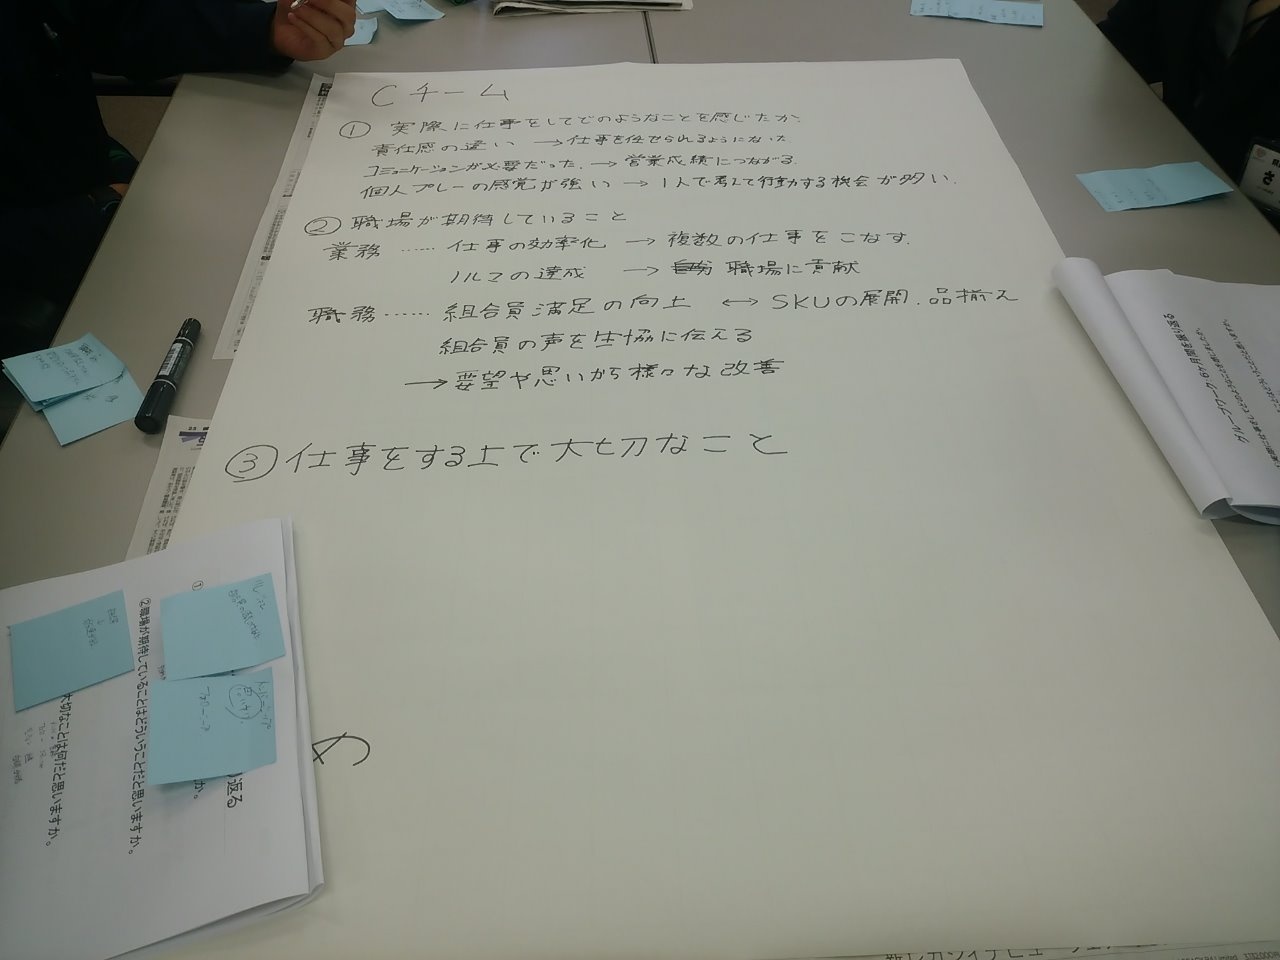 Cチーム
① 実際に仕事をしてどのようなことを感じたか。
責任感の違い → 仕事を任せられるようになった
コミュニケーションが必要だった. → 営業成績につながる.
個人プレーの感覚が強い → 1人で考えて行動する機会が多い.
② 職場が期待していること
業務 …… 仕事の効率化 → 複数の仕事をこなす.
ノルマの達成 → 自分 職場に貢献
職務 …… 組合員満足の向上 ↔ SKUの展開.品揃え
組合員の声を生協に伝える
→ 要望や思いから様々な改善
③ 仕事をする上で大切なこと
グループワーク 6ヶ月間を振り返る
①
②職場が期待していることはどういうことだと思いますか。
大切なことは何だと思いますか。
り返る
か。
フォローシップ
め